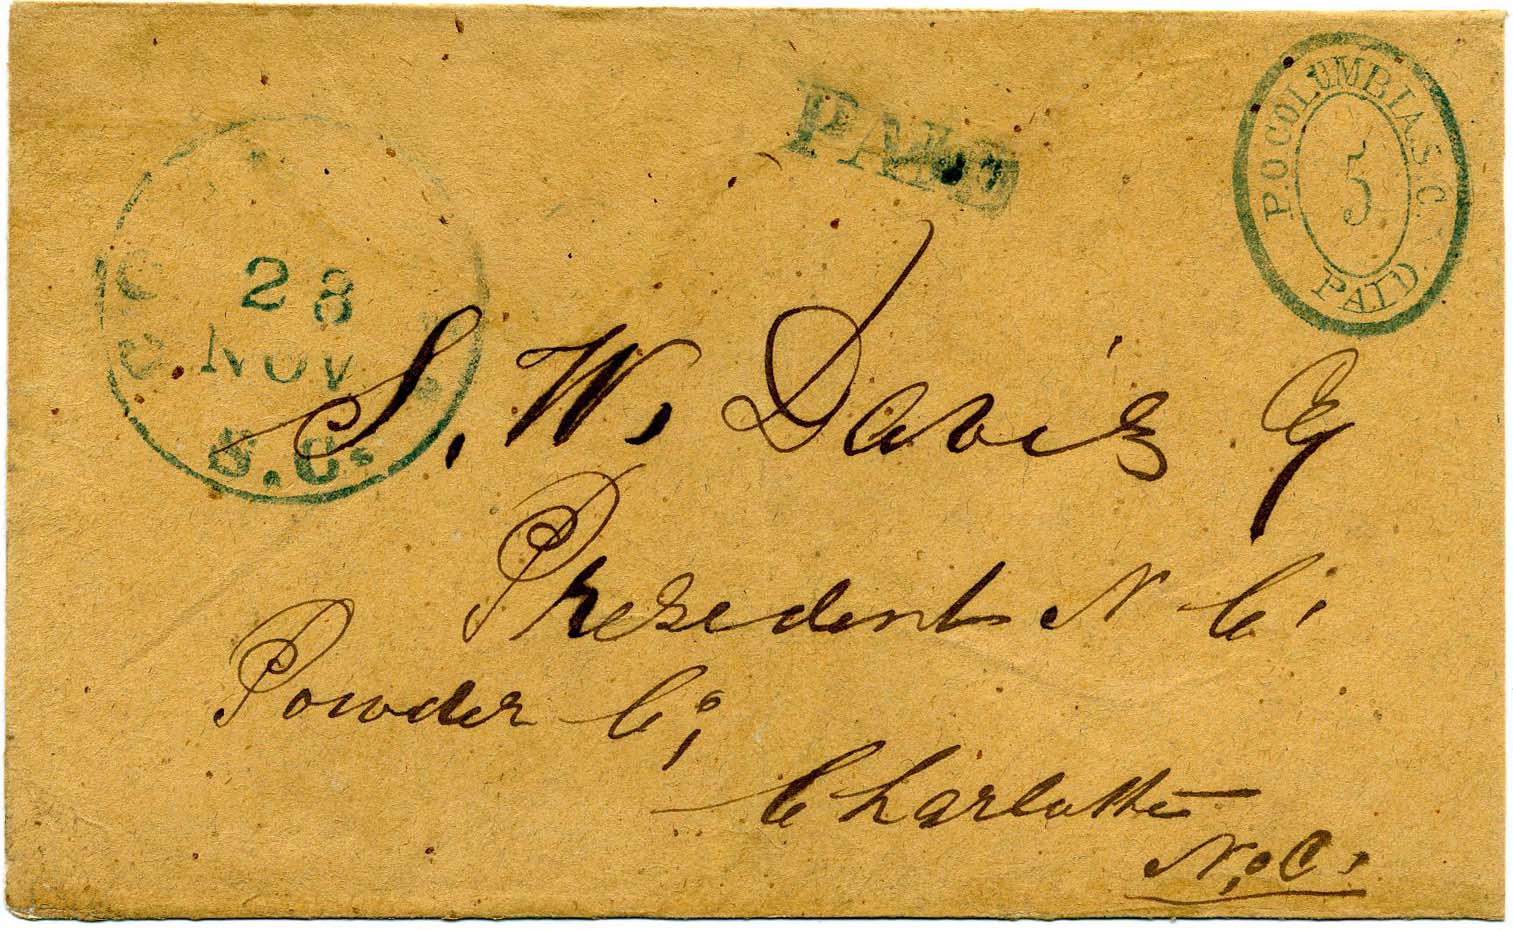 PAID
P.O COLUMBIA, S.C.
5
PAID
28
NOV
S.C.
S. W. Davis
President N C.
Powder Co,
Charlotte
N.C.